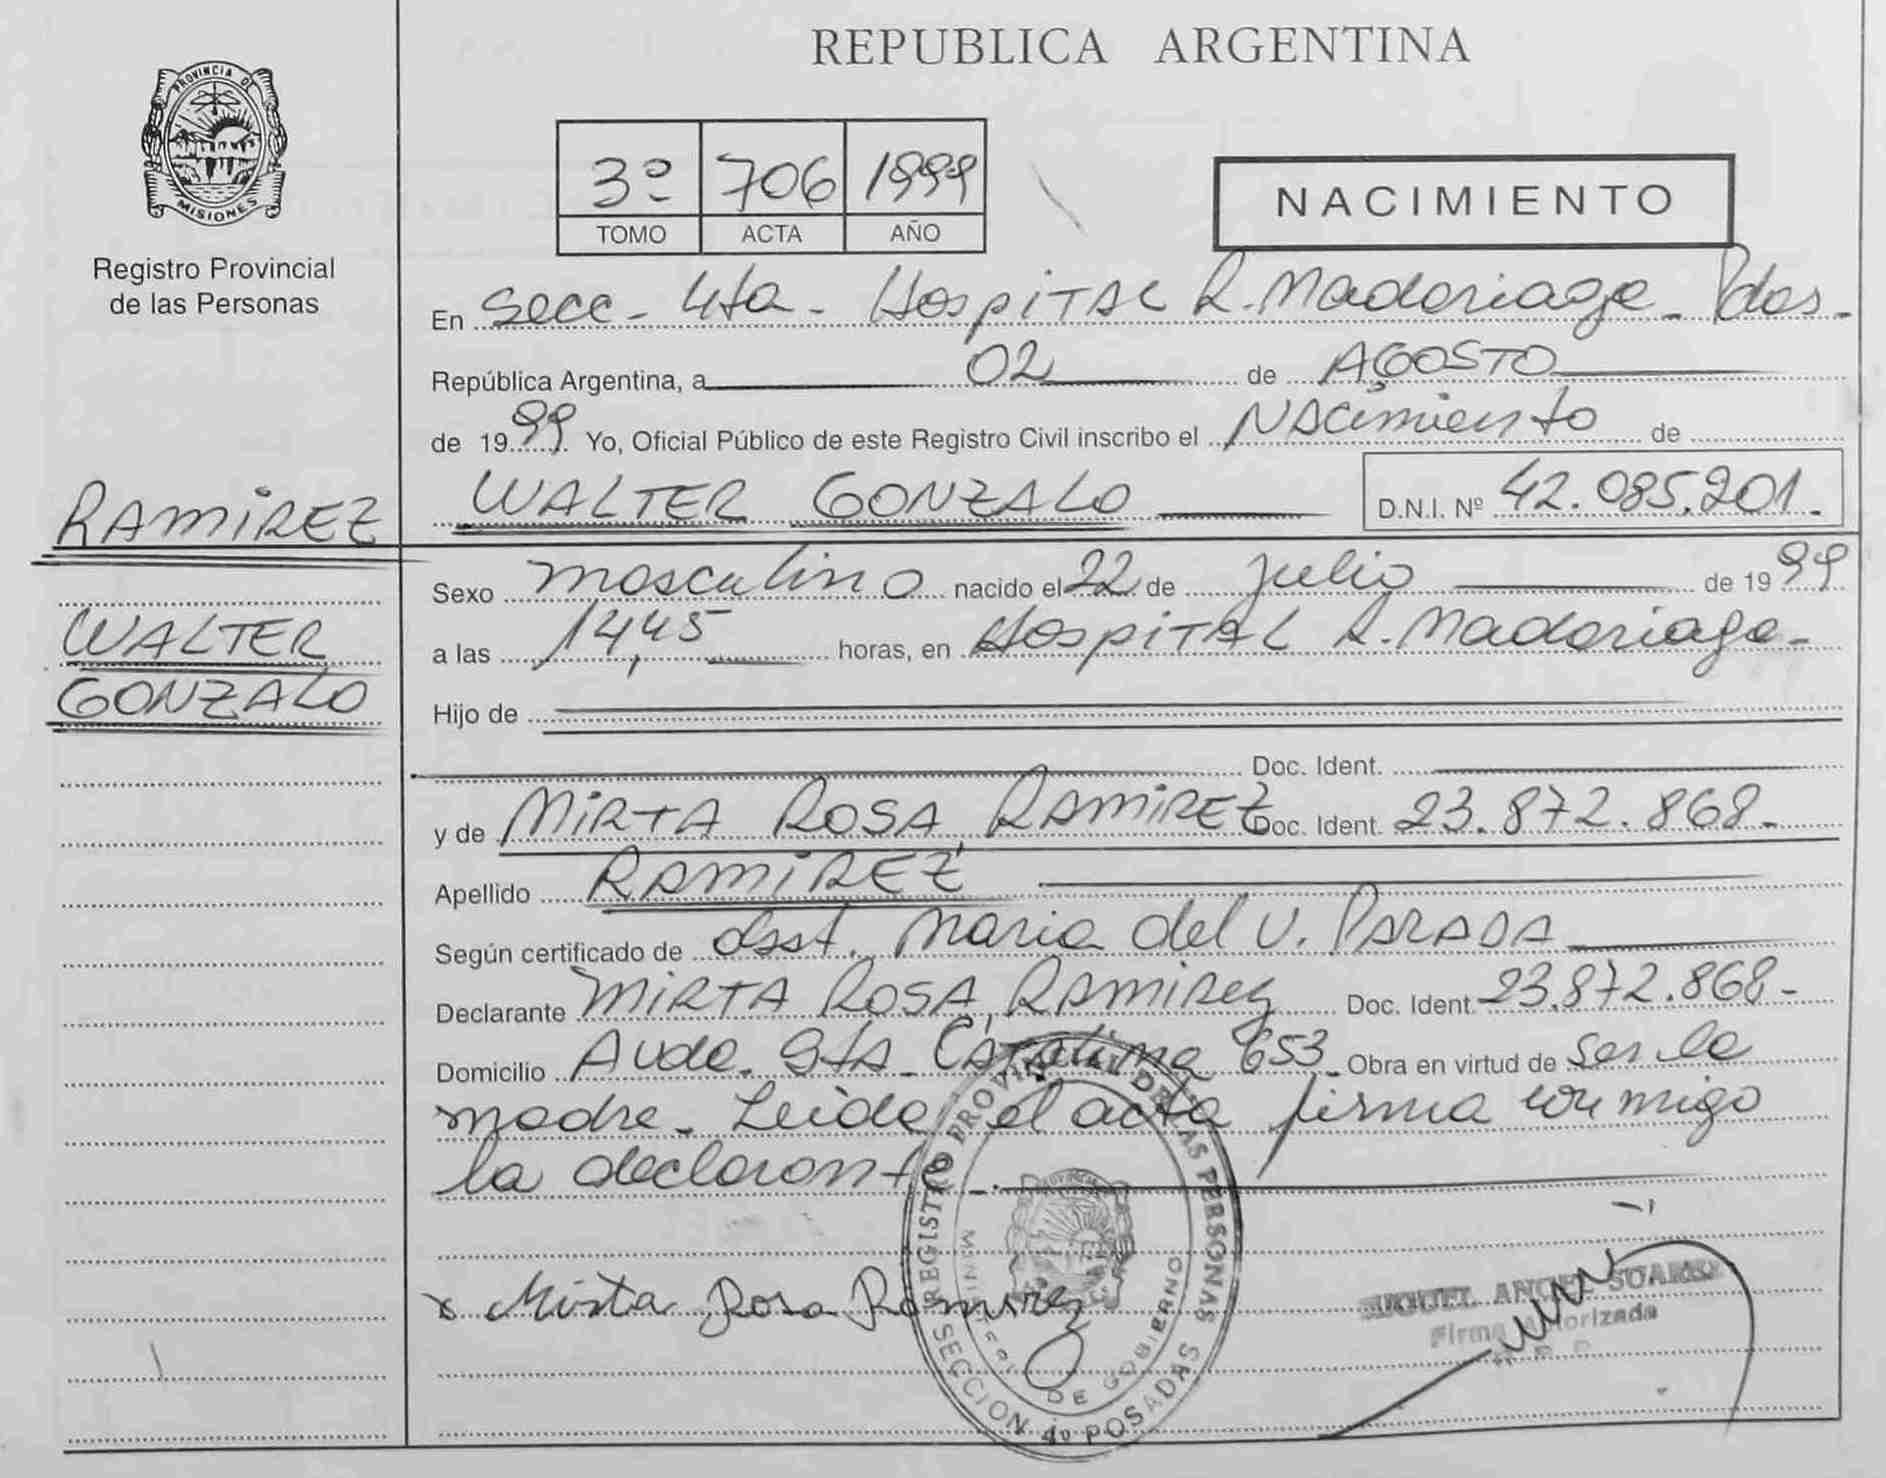 REPUBLICA ARGENTINA
PROVINCIA DE
MISIONES
Registro Provincial
de las Personas
3º 706 1999
TOMO ACTA AÑO
NACIMIENTO
En Secc - 4ta - Hospital R. Madariaga - Pdas. -
República Argentina, a 02 de AGOSTO
de 1999 Yo, Oficial Público de este Registro Civil inscribo el Nacimiento de
WALTER GONZALO D.N.I. Nº 42.085.201.
RAMIREZ
WALTER
GONZALO
Sexo masculino nacido el 22 de julio de 1999
a las 14,45 horas, en Hospital R. Madariaga -
Hijo de
Doc. Ident.
y de MIRTA ROSA RAMIREZ Doc. Ident. 23.872.868 -
Apellido RAMIREZ
Según certificado de Obst. Maria del V. PARADA
Declarante MIRTA ROSA RAMIREZ Doc. Ident. 23.872.868 -
Domicilio Avda. Sta. Catalina 653 - Obra en virtud de ser la
madre - Leida el acta firma conmigo
la declarante. -
x Mirta Rosa Ramirez
REGISTRO PROVINCIAL DE LAS PERSONAS
MINISTERIO DE GOBIERNO
SECCION 4º POSADAS
MIGUEL ANGEL SUAREZ
Firma Autorizada